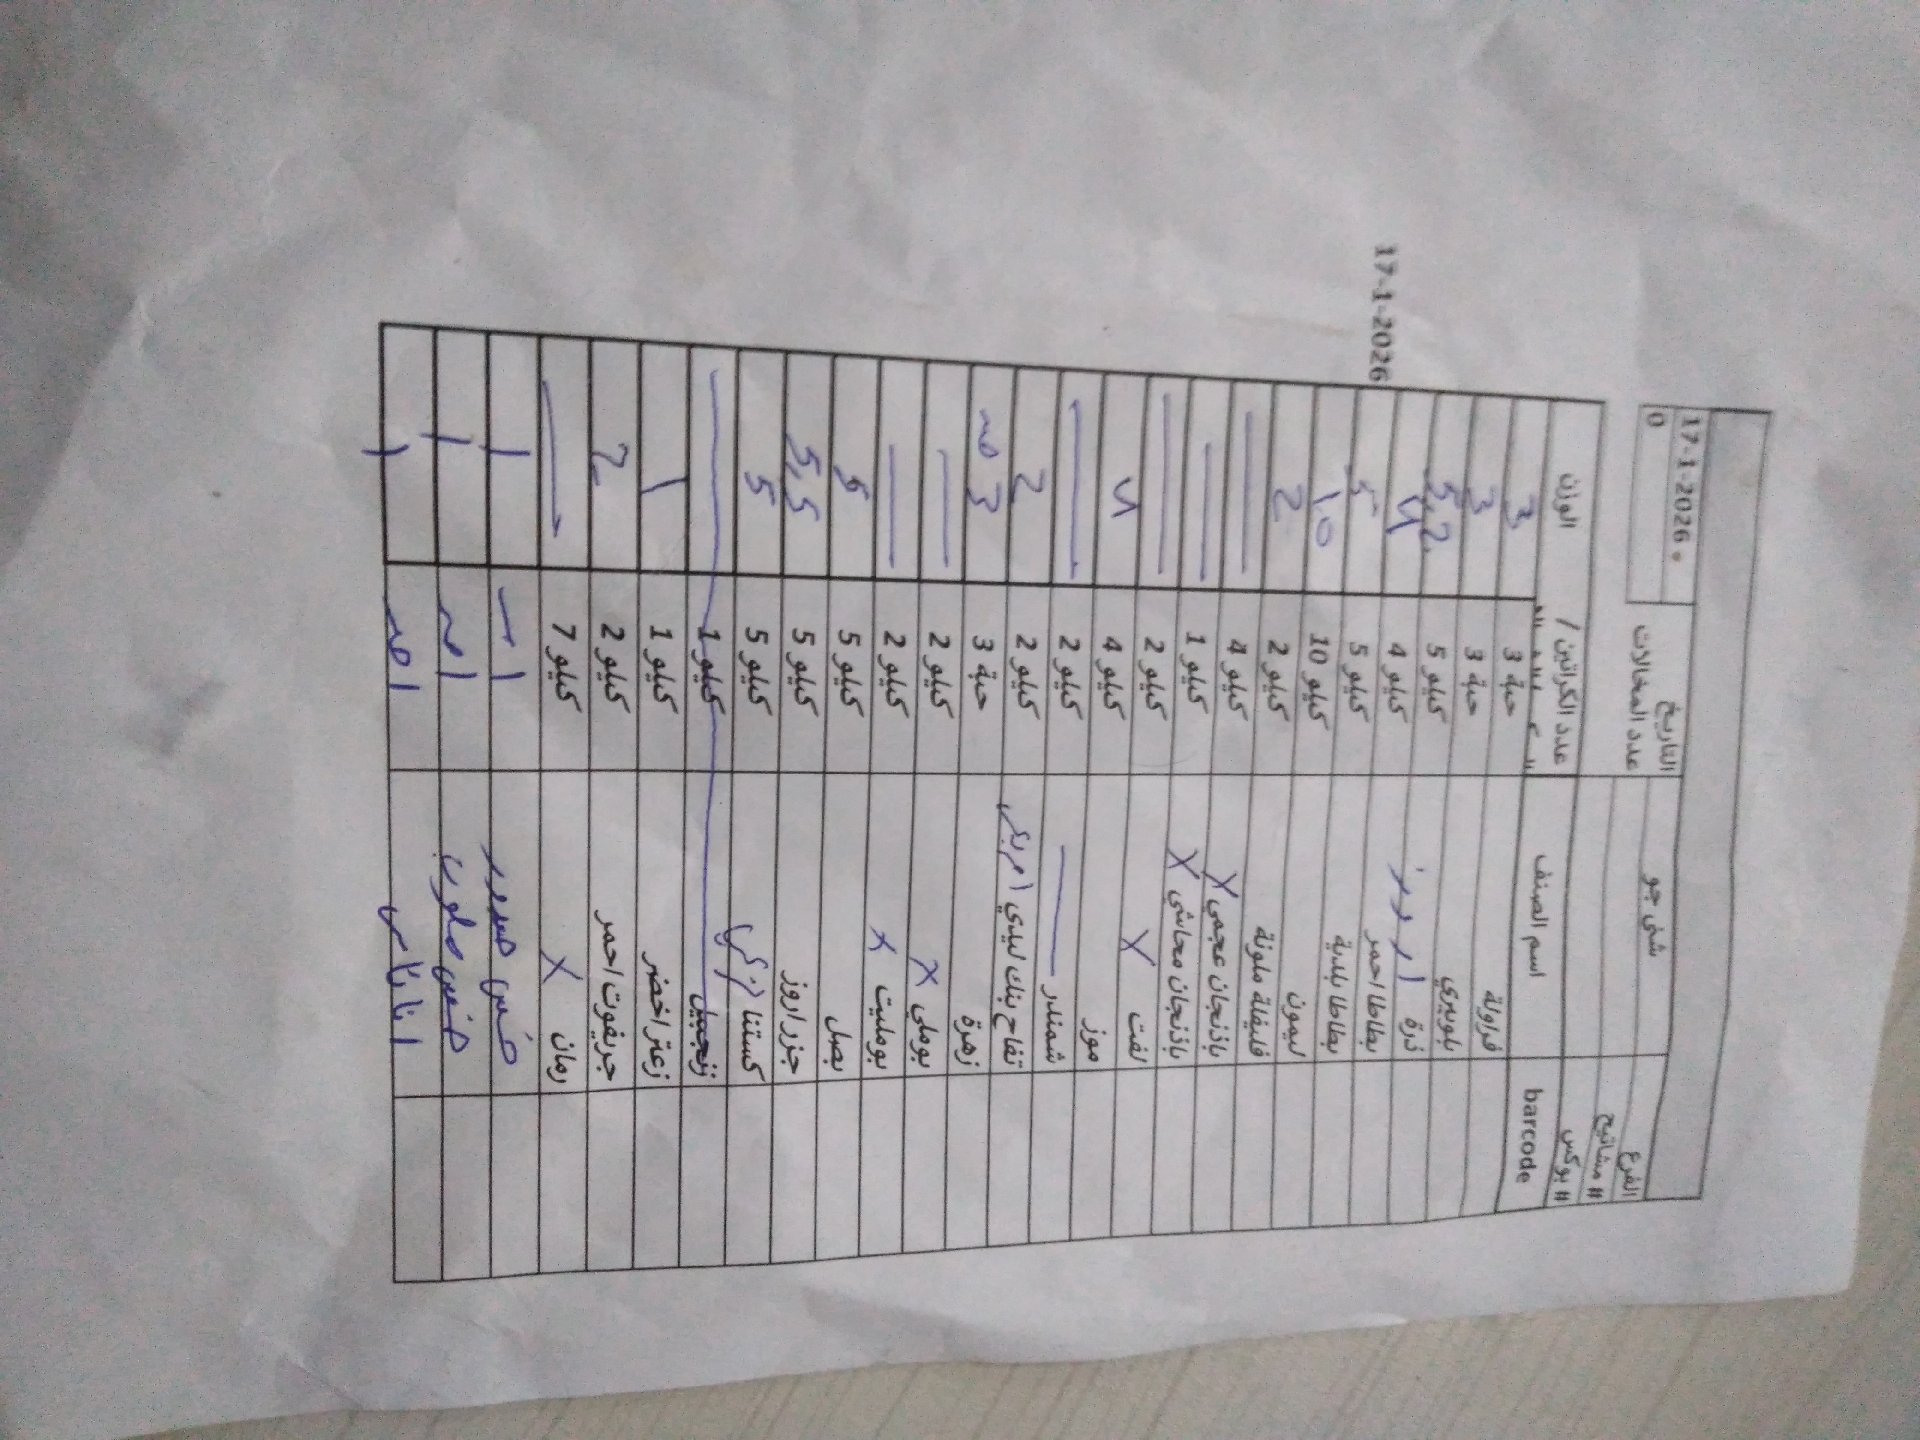 17-1-2026
الفرع شني جو التاريخ 17-1-2026
# مشاتيح عدد المخالات 0
# بوكس
barcode اسم الصنف عدد الكراتين / الوزن
فراولة 3 حبة 3
بلوبيري 3 حبة 3
ذرة 5 كيلو 5,2
بطاطا احمر 4 كيلو
بطاطا بلدية 5 كيلو 5
ليمون 10 كيلو 10
فليفلة ملونة 2 كيلو 2
باذنجان عجمي X 4 كيلو
باذنجان محاشي X 1 كيلو
لفت X 2 كيلو
موز 4 كيلو
شمندر 2 كيلو
تفاح بنك ليدي 2 كيلو 2
زهرة 3 حبة 3 حبه
بوملي X 2 كيلو
بومليت X 2 كيلو
بصل 5 كيلو 5
جزر اروز 5 كيلو 5,5
كستنا 5 كيلو 5
زنجبيل 1 كيلو
زعتر اخضر 1 كيلو 1
جريفوت احمر 2 كيلو 2
رمان X 7 كيلو
خس مدور 1
خس 1
اناناس 1